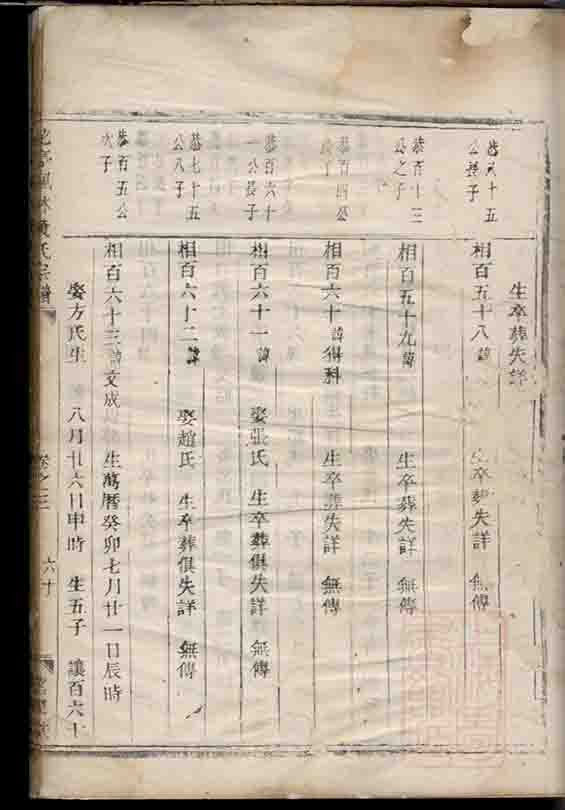 生卒葬失詳
恭八十五
公長子
相百五十八諱 生卒葬失詳 無傳
恭百十三
公之子
相百五十九諱 生卒葬失詳 無傳
恭百四公
長子
相百六十諱得科 生卒葬失詳 無傳
恭百六十
一公長子
相百六十一諱 娶張氏 生卒葬俱失詳 無傳
恭七十五
公八子
相百六十二諱 娶趙氏 生卒葬俱失詳 無傳
恭百五公
次子
相百六十三諱文成 生萬曆癸卯七月廿一日辰時
娶方氏生 八月廿六日申時 生五子 讓百六十
林黃氏宗譜 卷之三 六十